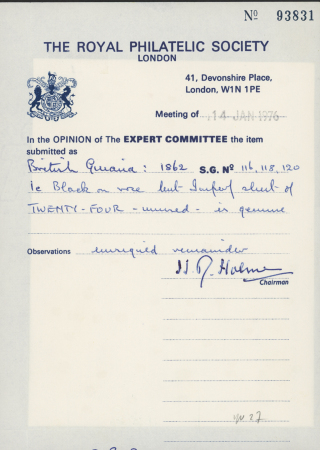 No 93831
THE ROYAL PHILATELIC SOCIETY
LONDON
41, Devonshire Place,
London, W1N 1PE
Meeting of 14 JAN 1976
In the OPINION of The EXPERT COMMITTEE the item
submitted as
British Guiana: 1862 S.G. No 116, 118, 120
1c Black on rose but Imperf sheet of
TWENTY-FOUR - unused - is genuine
Observations unsigned remainder
H. R. Holmes
Chairman